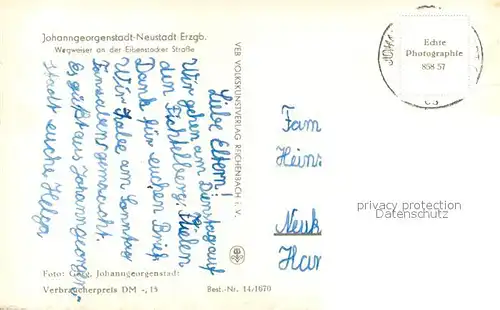 Johanngeorgenstadt-Neustadt Erzgb.
Wegweiser an der Eibenstocker Straße
Liebe Eltern!
Wir gehen am Dienstag auf
den Fichtelberg. Vielen
Dank für euchen Brief
Wir habe am Sonntag
gemacht.
Es grüßt aus Johanngeorgen-
stadt euche Helga
VEB VOLKSKUNSTVERLAG REICHENBACH i. V.
Echte
Photographie
858 57
Fam
Hein
Neuk
Har
privacy protection
Datenschutz
Foto: Georg, Johanngeorgenstadt
Verbraucherpreis DM -,15
Best.-Nr. 14/1670